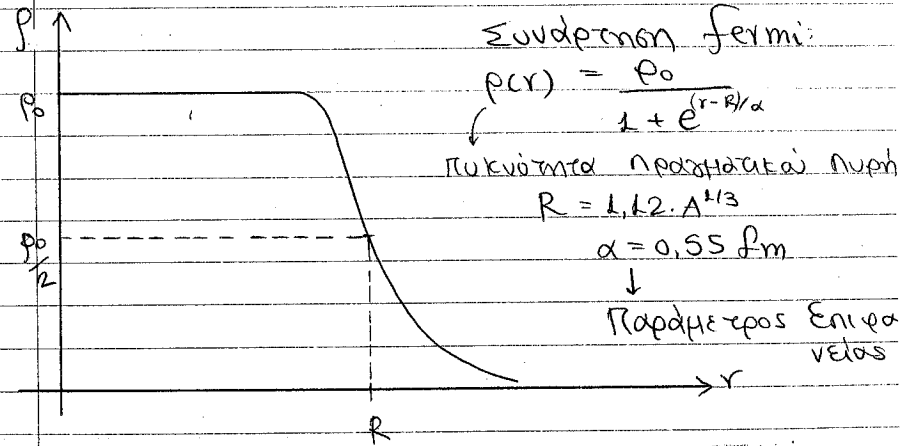 ρ
Συνάρτηση fermi:
ρ(r) = ρ₀ / (1 + e^{(r-R)/α})
ρ₀
Πυκνότητα πραγματικού πυρή
R = 1,12 · A^{1/3}
α = 0,55 fm
ρ₀/2
Παράμετρος Επιφα
νείας
r
R